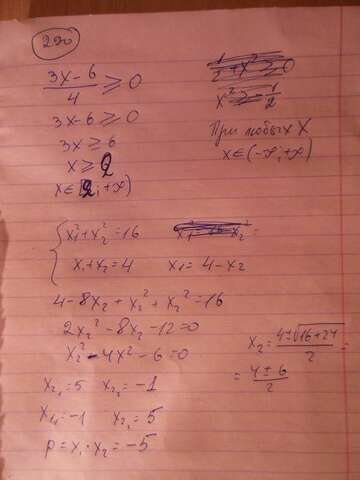 290
3x-6/4 ≥ 0
3x-6 ≥ 0
3x ≥ 6
x ≥ 2
x∈[2; +∞)
x² ≥ -1/2
При любых X
x∈(-∞; +∞)
x₁²+x₂²=16
x₁+x₂=4 x₁=4-x₂
4-8x₂+x₂²+x₂²=16
2x₂²-8x₂-12=0
x₂²-4x²-6=0
x₂=4±√16+24/2=
=4±6/2
x₂₁=5 x₂₂=-1
x₁₁=-1 x₂₁=5
p=x₁·x₂=-5